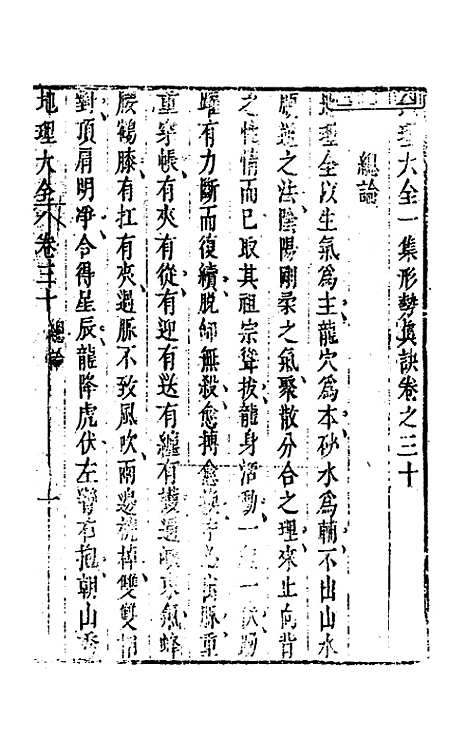 地理大全一集形勢真訣卷之三十
總論
地理全以生氣為主龍穴為本砂水為輔不出山水
順逆之法陰陽剛柔之氣聚散分合之理來止向背
之性情而已取其祖宗聳拔龍身活動一一伏踴
躍有力斷而復續脫卸無殺愈摶愈脈重
重穿帳有夾有從有迎有送有纏有護氣蜂
腰鶴膝有扛有夾過脈不致風吹兩邊橈棹雙雙
對頂肩明净合得星辰龍降虎伏左彎右抱朝山秀
地理大全 卷三十 總論 一